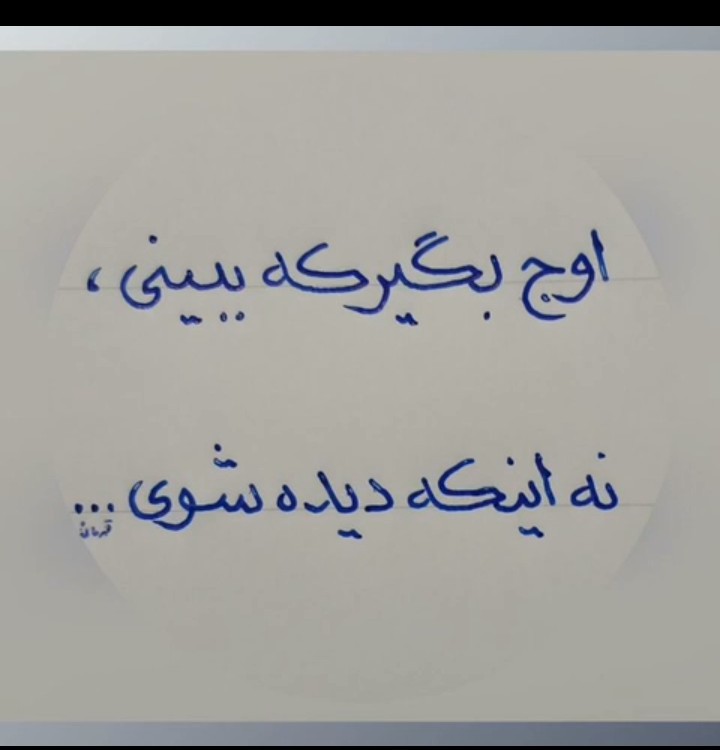 اوج بگیر که ببینی ،
نه اینکه دیده شوی ...